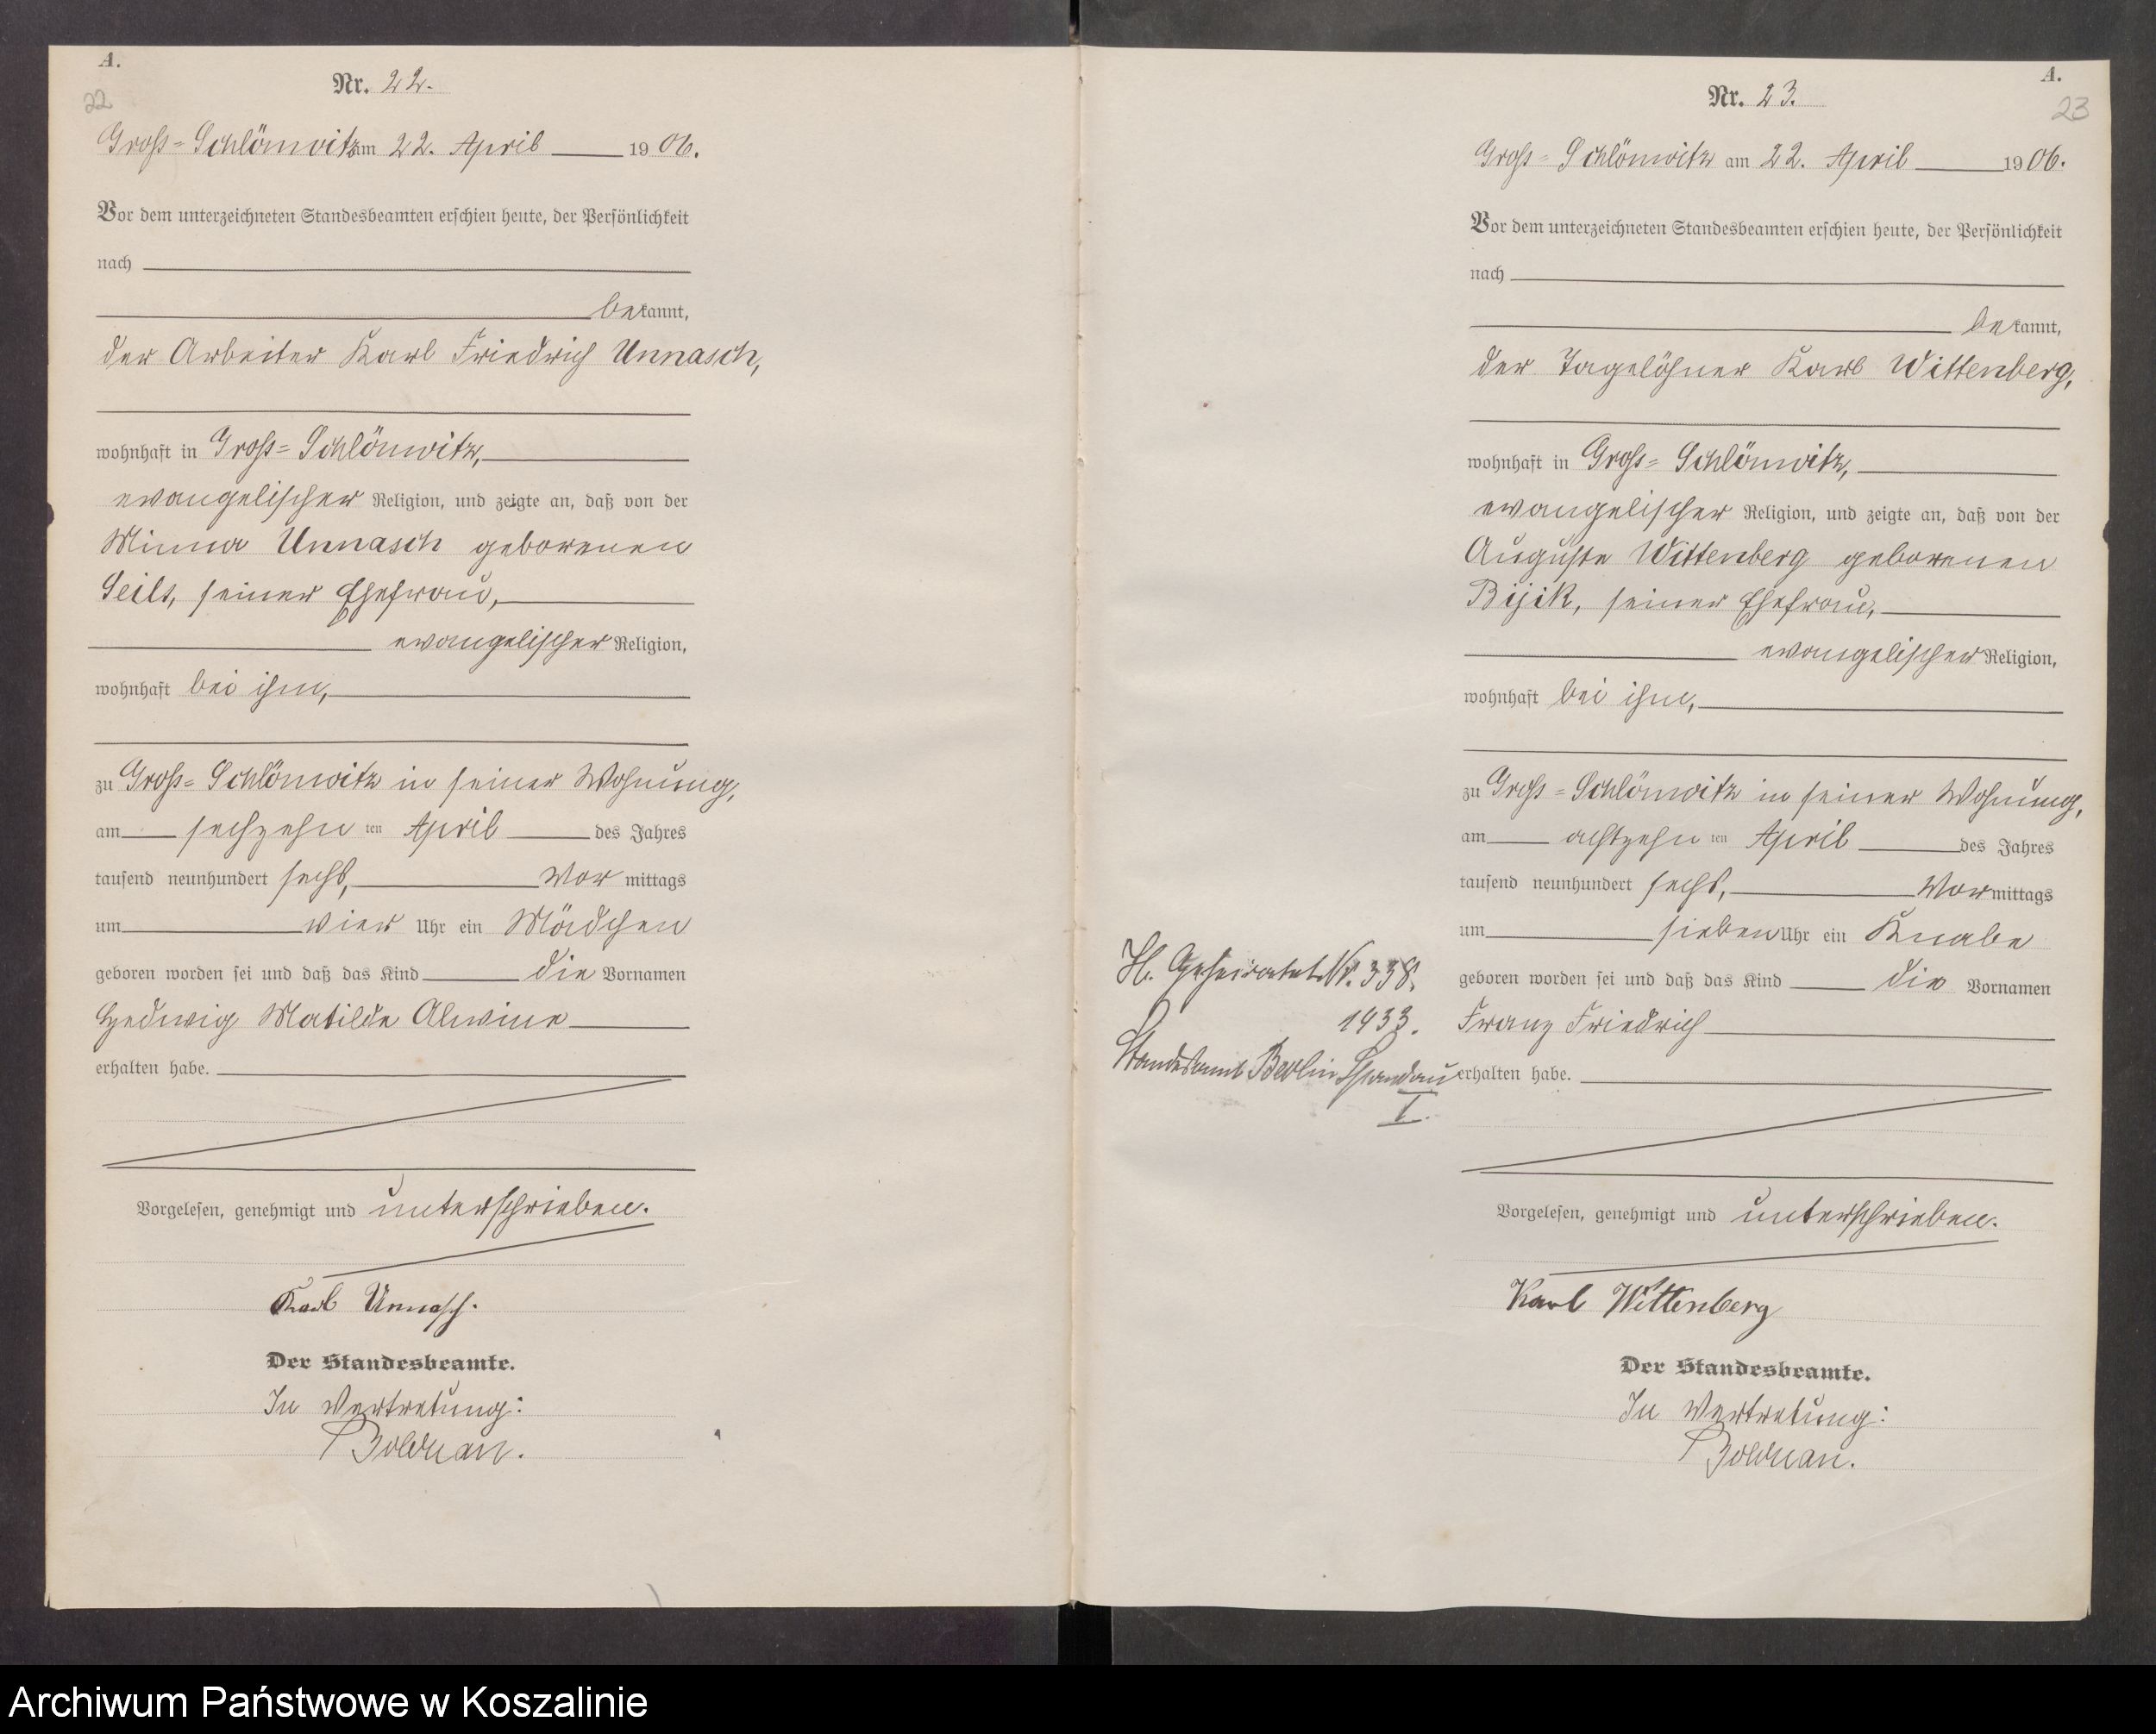 A.
22
Nr. 22.
Gross-Schlönwitz am 22. April 1906.
Vor dem unterzeichneten Standesbeamten erschien heute, der Persönlichkeit
nach
bekannt,
der Arbeiter Karl Friedrich Unnasch,
wohnhaft in Gross-Schlönwitz,
evangelischer Religion, und zeigte an, daß von der
Minna Unnasch geborenen
Seils, seiner Ehefrau,
evangelischer Religion,
wohnhaft bei ihm,
zu Gross-Schlönwitz in seiner Wohnung,
am sechzehn ten April des Jahres
tausend neunhundert sechs, Vor mittags
um vier Uhr ein Mädchen
geboren worden sei und daß das Kind die Vornamen
Hedwig Matilde Alwine
erhalten habe.
Vorgelesen, genehmigt und unterschrieben.
Karl Unnasch.
Der Standesbeamte.
In Vertretung:
Bolduan.
A.
23
Nr. 23.
Gross-Schlönwitz am 22. April 1906.
Vor dem unterzeichneten Standesbeamten erschien heute, der Persönlichkeit
nach
bekannt,
der Tagelöhner Karl Wittenberg,
wohnhaft in Gross-Schlönwitz,
evangelischer Religion, und zeigte an, daß von der
Auguste Wittenberg geborenen
Bijik, seiner Ehefrau,
evangelischer Religion,
wohnhaft bei ihm,
zu Gross-Schlönwitz in seiner Wohnung,
am achtzehn ten April des Jahres
tausend neunhundert sechs, Vormittags
um sieben Uhr ein Knabe
geboren worden sei und daß das Kind die Vornamen
Franz Friedrich
erhalten habe.
H. Geheiratet Nr. 338.
1933.
Standesamt Berlin Spandau
I.
Vorgelesen, genehmigt und unterschrieben.
Karl Wittenberg
Der Standesbeamte.
In Vertretung:
Bolduan.
Archiwum Państwowe w Koszalinie